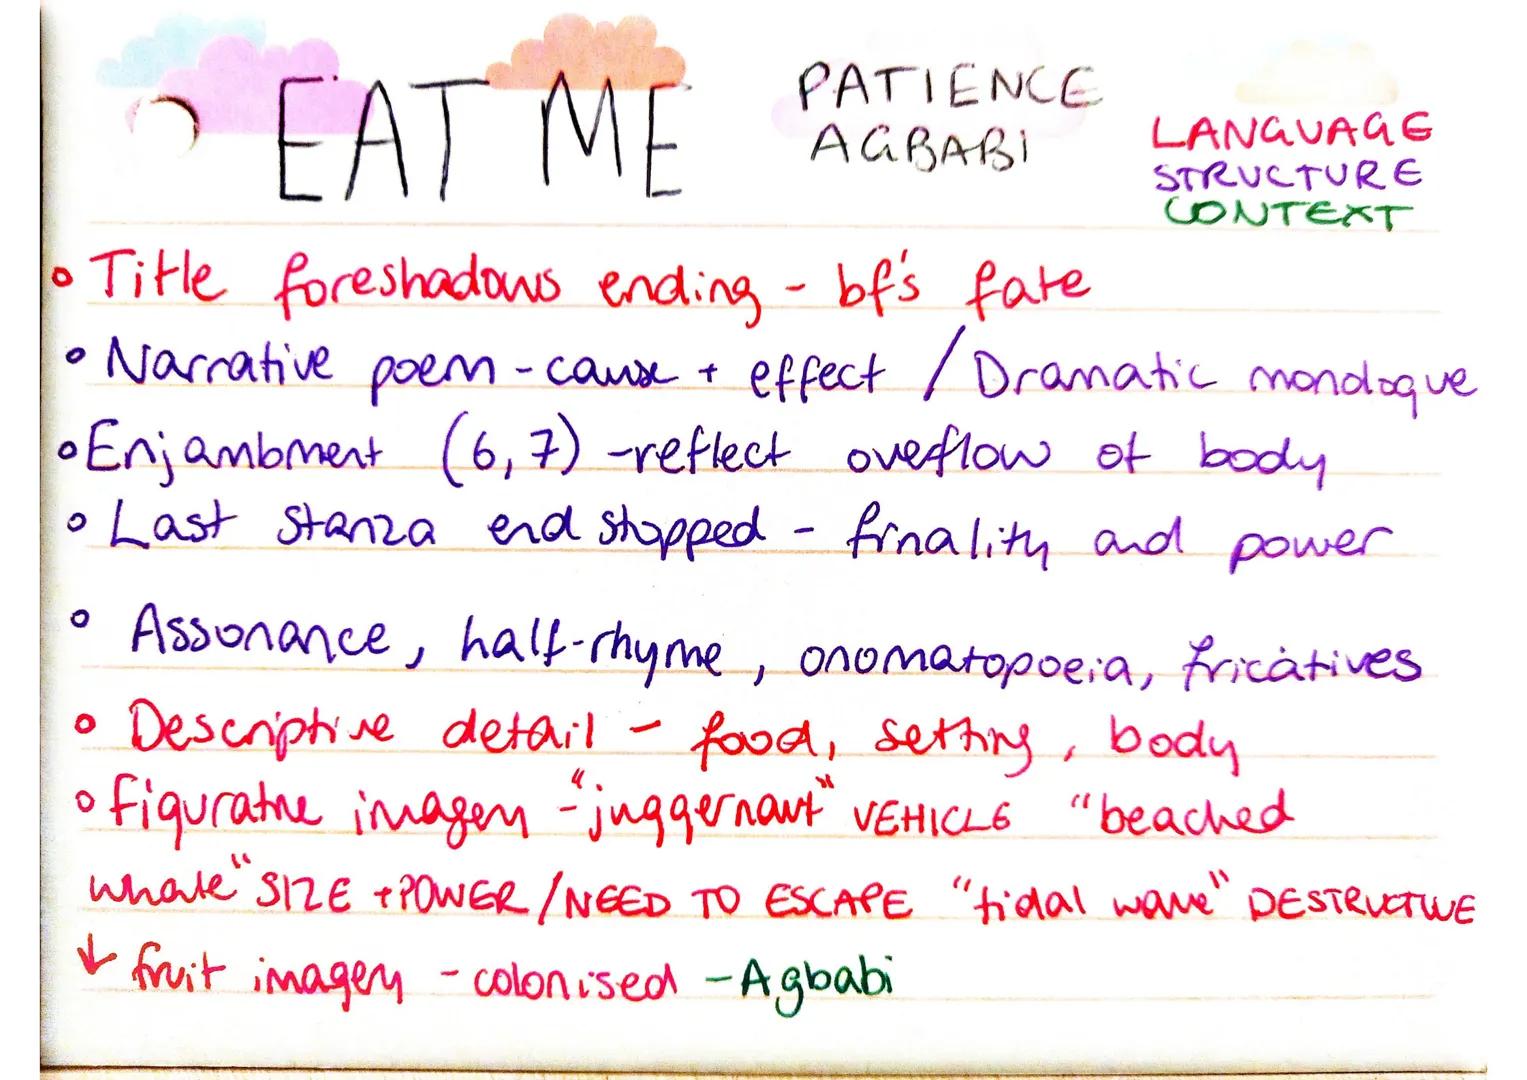 EAT ME
PATIENCE
AGBABI
LANGUAGE
STRUCTURE
CONTEXT
• Title foreshadows ending - bf's fate
• Narrative poem - cause + effect / Dramatic monologue
• Enjambment (6,7) - reflect overflow of body
• Last stanza end stopped - finality and power
• Assonance, half-rhyme, onomatopoeia, fricatives
• Descriptive detail - food, setting, body
• Figurative imagery - "juggernaut" VEHICLE "beached
whale" SIZE + POWER / NEED TO ESCAPE "tidal wave" DESTRUCTIVE
↓ fruit imagery - colonised - Agbabi